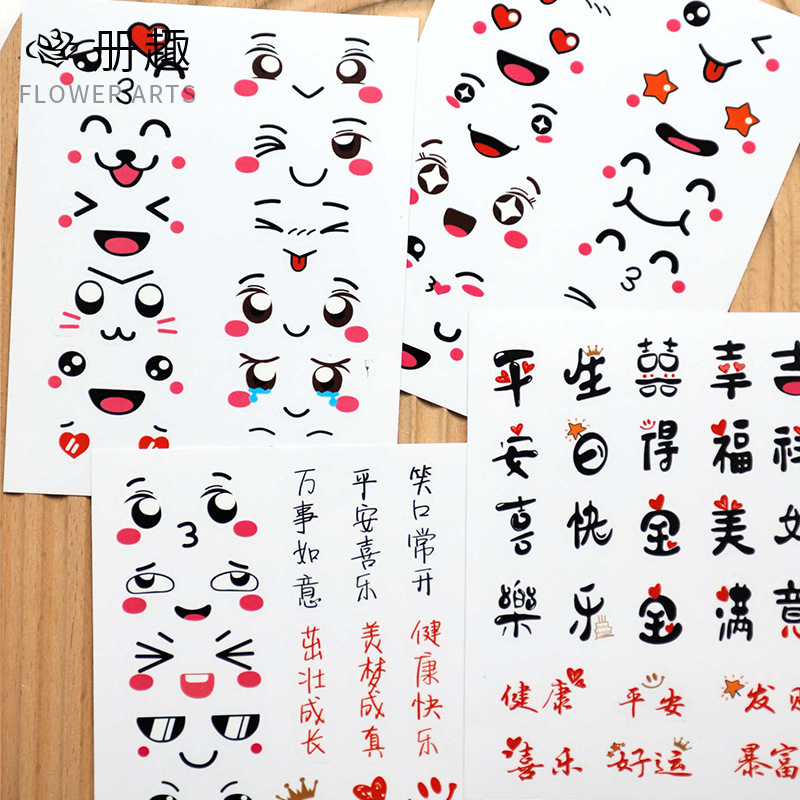 册趣
FLOWER ARTS
万事如意
平安喜乐
笑口常开
茁壮成长
美梦成真
健康快乐
平安喜樂
生日快乐
囍得金金
幸福美满
吉祥如意
健康
平安
发财
喜乐
好运
暴富